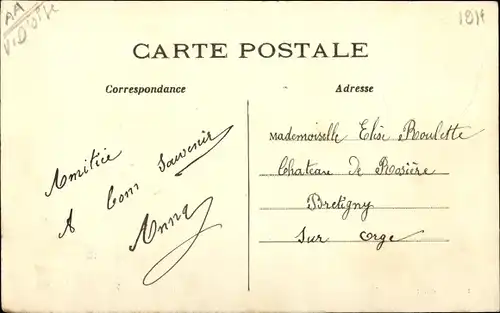 AA
1914
CARTE POSTALE
Correspondance
Adresse
Amitiée
A bon Souvenir
Anna
Mademoiselle Elise Roulette
Chateau de Rosière
Bretigny
Sur Orge